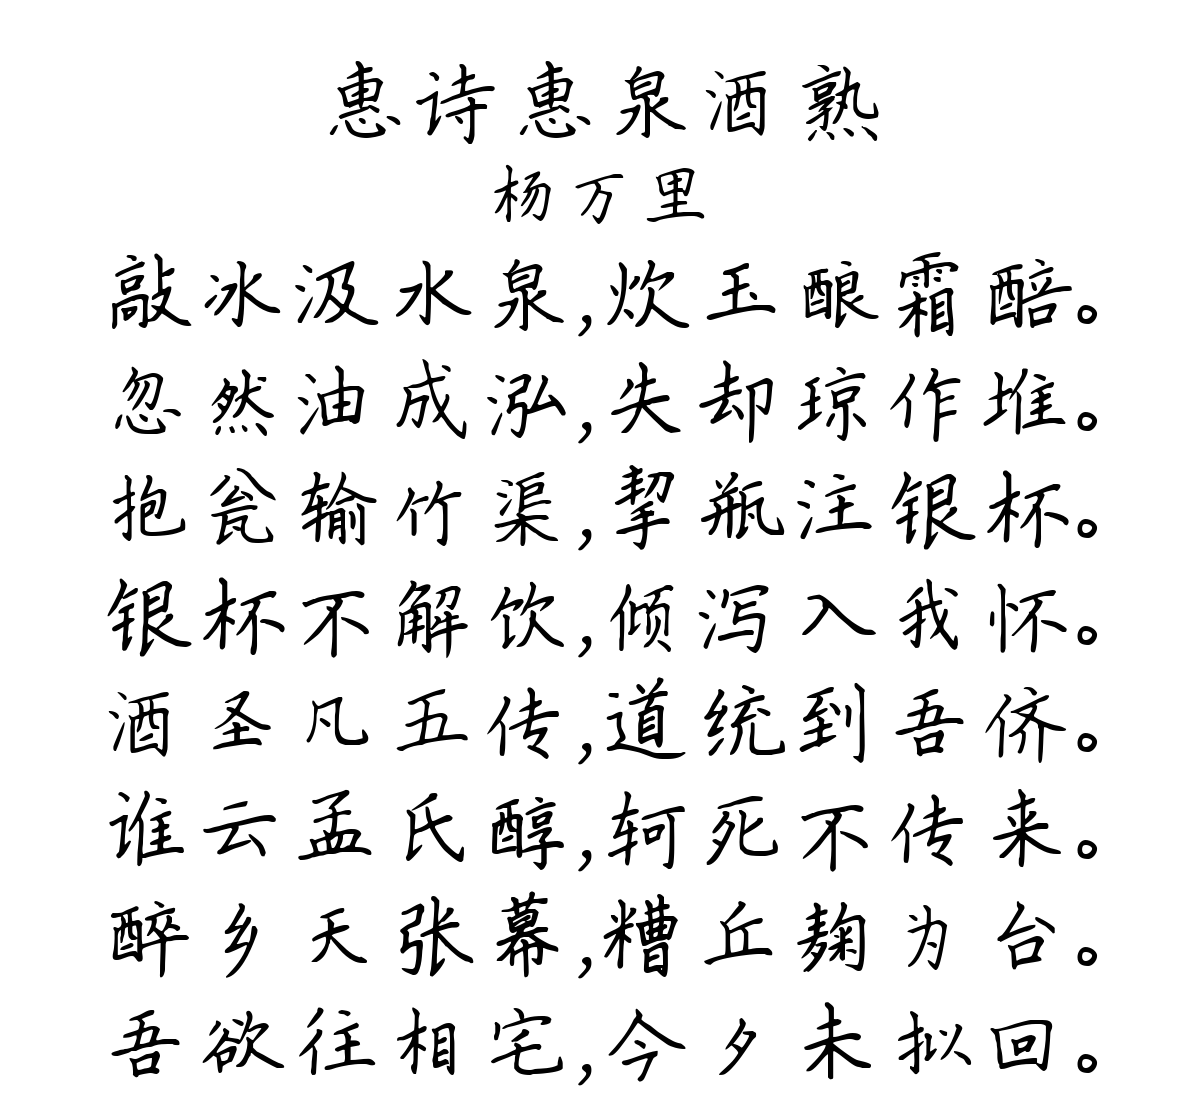 惠诗惠泉酒熟
杨万里
敲冰汲水泉,炊玉酿霜醅。
忽然油成泓,失却琼作堆。
抱瓮输竹渠,挈瓶注银杯。
银杯不解饮,倾泻入我怀。
酒圣凡五传,道统到吾侪。
谁云孟氏醇,轲死不传来。
醉乡天张幕,糟丘麹为台。
吾欲往相宅,今夕未拟回。